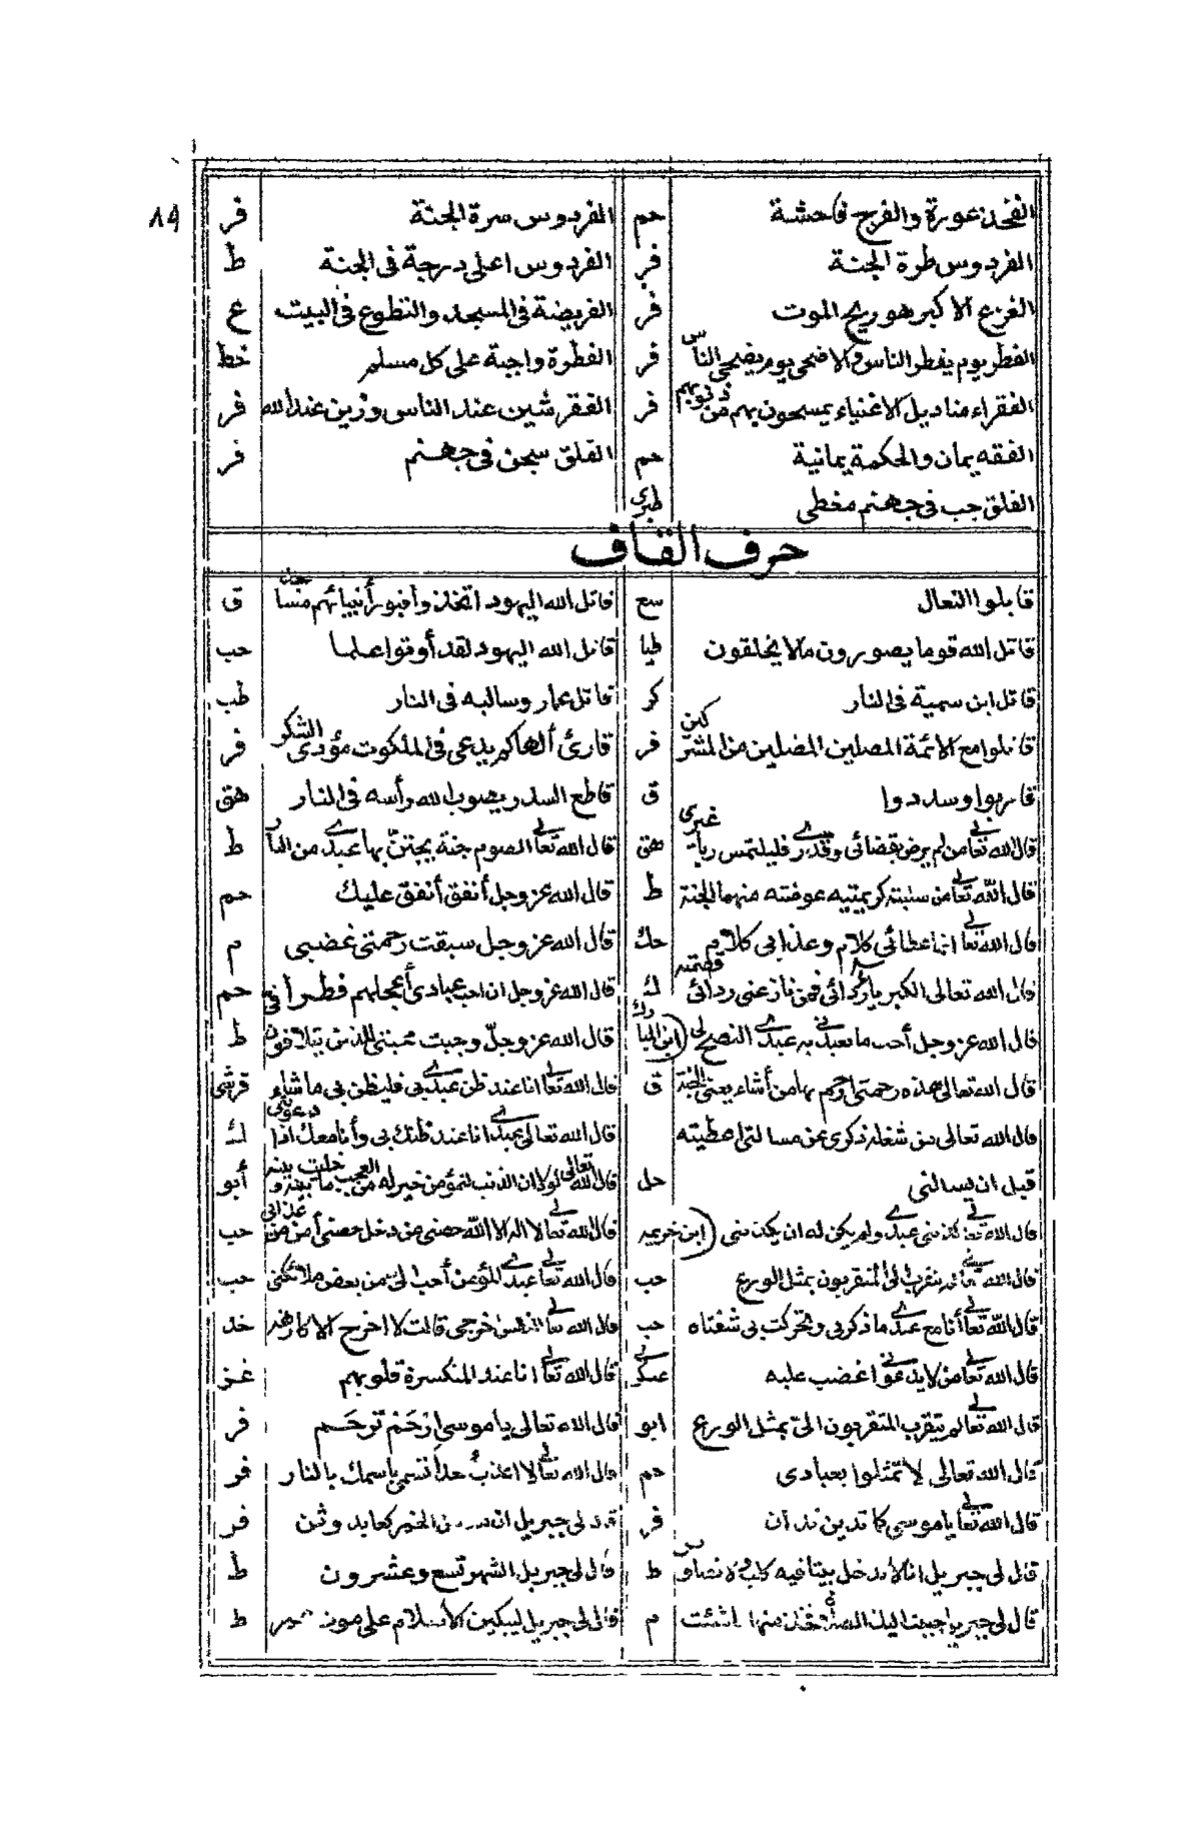 ٨٩
الفخذ عورة والفرج فاحشة حم الفردوس سرة الجنة فر
الفردوس طرة الجنة فر الفردوس اعلى درجة فى الجنة ط
الفزع الاكبر هو ريح الموت فر الفريضة فى المسجد والتطوع فى البيت ع
الفطر يوم يفطر الناس والاضحى يوم يضحى الناس فر الفطرة واجبة على كل مسلم خط
الفقراء مناديل الاغنياء يمسحون بهم من ذنوبهم فر الفقر شين عند الناس وزين عند الله فر
الفقه يمان والحكمة يمانية حم الفلق سجن فى جهنم فر
الفلق جب فى جهنم مغطى طبرى
حرف القاف
قابلوا النعال سع قاتل الله اليهود اتخذوا قبور أنبيائهم مساجد ق
قاتل الله قوما يصورون مالا يخلقون طيا قاتل الله اليهود لقد أوتوا علما حب
قاتل ابن سمية فى النار كر قاتل عمار وسالبه فى النار طب
قاتلوا مع الائمة المصلين المضلين من المشركين فر قارئ ألهاكم يدعى فى الملكوت مؤدى الشكر فر
قاربوا وسددوا ق قاطع السدر يصوب الله رأسه فى النار هق
قال الله تعالى من لم يرض بقضائى وقدرى فليلتمس ربا غيرى هق قال الله تعالى الصوم جنة يجتن بها عبدى من النار ط
قال الله تعالى من سلبته كريمتيه عوضته منهما الجنة ط قال الله عز وجل أنفق أنفق عليك حم
قال الله تعالى انما عطائى كلام وعذابى كلام حك قال الله عز وجل سبقت رحمتى غضبى م
قال الله تعالى الكبرياء ردائى فمن نازعنى ردائى قصمته ك قال الله عز وجل ان احب عبادى أعجلهم فطرا حم
قال الله عز وجل أحب ما تعبدنى به عبدى النصح لى (ابن المبارك قال الله عز وجل وجبت محبتى للذين يتلاقون ط
قال الله تعالى هذه رحمتى ارحم بها من أشاء يعنى الجنة ق قال الله تعالى انا عند ظن عبدى بى فليظن بى ما شاء قرشى
قال الله تعالى من شغله ذكرى عن مسالتى اعطيته قال الله تعالى عبدى انا عند ظنك بى وأنا معك اذا دعوتنى ك
قبل ان يسالنى حل قال الله تعالى لولا ان الذنب لمؤمن خير له من العجب ما خليت بينه و أبو
قال الله تعالى كذبنى عبدى ولم يكن له ان يكذبنى (ابن خزيمه قال الله تعالى لا اله الا الله حصنى من دخل حصنى أمن من عذابى حب
قال الله تعالى يتقرب الى المتقربون بمثل الورع حب قال الله تعالى عبدى المؤمن أحب الى من بعض ملائكتى حب
قال الله تعالى أنا مع عبدى ما ذكرنى وتحركت بى شفتاه حب قال الله تعالى للنفس اخرجى قالت لا اخرج الا كارهة خد
قال الله تعالى من لا يدعونى اغضب عليه عسكرى قال الله تعالى انا عند المنكسرة قلوبهم غز
قال الله تعالى لم يتقرب المتقربون الى بمثل الورع ابو قال الله تعالى يا موسى ارحم ترحم فر
قال الله تعالى لا تمثلوا بعبادى حم قال الله تعالى لا اعذب أحدا تسمى باسمك بالنار فر
قال الله تعالى يا موسى كما تدين تدان فر لى جبريل ان الخمر كعابد وثن فر
قال لى جبريل انا لا ندخل بيتا فيه كلب ولا تصاوير ط قال لى جبريل الشهر تسع وعشرون ط
قال لى جبريل حببت اليك الصلاة فخذ منها ما شئت م قال لى جبريل ليبكين الاسلام على موت عمر ط